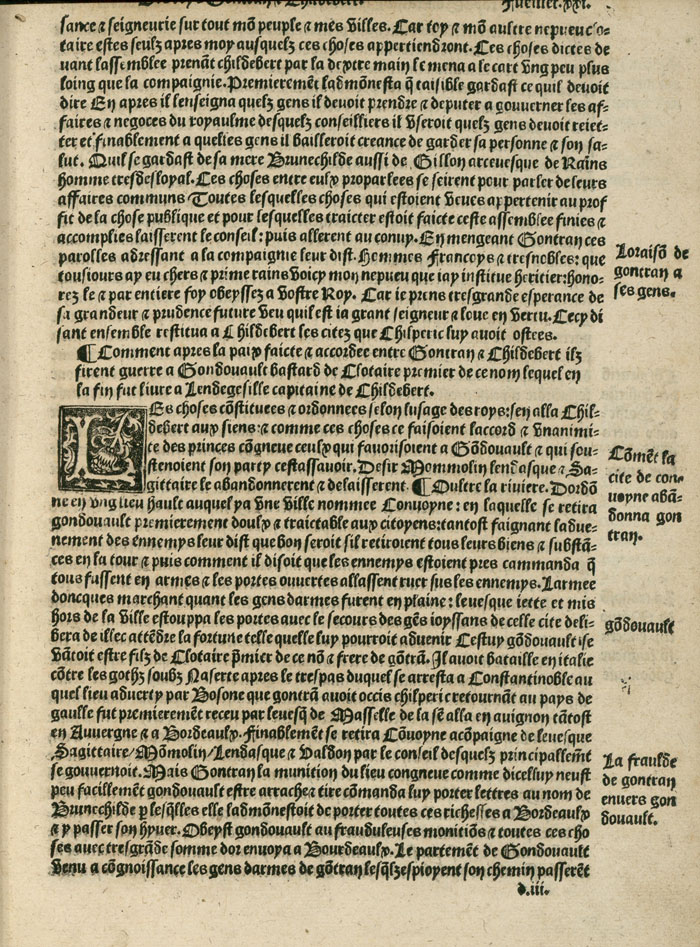 Fueillet.xxi.
sance & seigneurie sur tout mõ peuple & mes villes. Car toy & mõ aultre nepueu Clo-
taire estes seulz apres moy ausquelz ces choses appertiendront. Ces choses dictes de
uant lassemblee prenãt childebert par la dextre main le mena a le cart vng peu plus
loing que la compaignie. Premieremẽt ladmõnesta q̃ taisible gardast ce quil deuoit
dire En apres il lenseigna quelz gens il deuoit prendre & deputer a gouuerner les af-
faires & negoces du royaulme desquelz conseilliers il vseroit quelz gens deuoit reiet-
ter et finablement a quelles gens il bailleroit creance de garder sa personne & son sa-
lut. Quil se gardast de sa mere Brunechilde aussi de Gillon arceuesque de Rains
homme tresdesloyal. Ces choses entre eulx proparlees se seirent pour parler de leurs
affaires communs Toutes lesquelles choses qui estoient veues appertenir au prof
fit de la chose publique et pour lesquelles traicter estoit faicte ceste assemblee finies &
accomplies laisserent le conseil: puis allerent au conuy. En mengeant Gontran ces
parolles adressant a la compaignie leur dist. Hommes Francoys & tresnobles: que
tousiours ay eu chers & prime rains voicy mon nepueu que iay institue heritier: hono-
rez le & par entiere foy obeyssez a vostre Roy. Car ie prens tresgrande esperance de
sa grandeur & prudence future veu quil est ia grant seigneur & loue en vertu. Cecy di
sant ensemble restitua a Childebert les citez que Chilperic luy auoit ostees.
Loraisõ de
gontran a
ses gens.
¶ Comment apres la paix faicte & accordee entre Gontran & Childebert ilz
firent guerre a Gondouault bastard de Clotaire premier de ce nom lequel en
la fin fut liure a Lendegesille capitaine de Childebert.
LEs choses cõstituees & ordonnees selon lusage des roys: sen alla Chil-
debert aux siens: & comme ces choses ce faisoient laccord & vnanimi-
te des princes cõgneue ceulx qui fauorisoient a Gõdouault & qui sou-
stenoient son party cestassauoir. Desir Mommolin lendasque & Sa-
gittaire le abandonnerent & delaisserent. ¶ Oultre la riuiere. Dordõ
ne en vng lieu hault auquel ya vne ville nommee Conuoyne: en laquelle se retira
gondouault premierement doulx & traictable aux citoyens: tantost faignant ladue-
nement des ennemys leur dist que bon seroit sil retiroient tous leurs biens & substã-
ces en la tour & puis comment il disoit que les ennemys estoient pres cammanda q̃
tous fussent en armes & les portes ouuertes allassent ruer sus les ennemys. Larmee
doncques marchant quant les gens darmes furent en plaine: leuesque iette et mis
hors de la ville estouppa les portes auec le secours des gẽs ioyssans de celle cite deli-
bera de illec attẽdre la fortune telle quelle luy pourroit aduenir Cestuy gõdouault se
vãtoit estre filz de Clotaire p̃mier de ce nõ & frere de gõtrã. Il auoit bataille en italie
cõtre les gothz soubz Naserte apres le trespas duquel se arresta a Constantinoble au
quel lieu aduerty par Bosone que gontrã auoit occis chilperic retournãt au pays de
gaulle fut premierement receu par leuesq̃ de Masselle de la sẽ alla en auignon tãtost
en Auuergne & a Bordeaulx. Finablement se retira Cõuoyne acõpaigne de leuesque
Sagittaire/Mõmolin/Lendasque & Valdon par le conseil desquelz principallemẽt
se gouuernoit. Mais Gontran la munition du lieu congneue comme dicelluy neust
peu facillemẽt gondouault estre arrache & tire cõmanda luy porter lettres au nom de
Brunechilde p̱ lesq̃lles elle ladmõnestoit de porter toutes ces richesses a Bordeaulx
& y passer son hyuer. Obeyst gondouault au frauduleuses monitiõs & toutes ces cho
ses auec tresgrãde somme dor enuoya a Bourdeaulx. Le partemẽt de Gondouault
venu a cõgnoissance les gens darmes de gõtran lesq̃lz espioyent son chemin passerẽt
d.iii.
Cõmẽt la
cite de con-
uoyne abã-
donna gon
tran.
gõdouault
La fraulde
de gontran
enuers gon
douault.